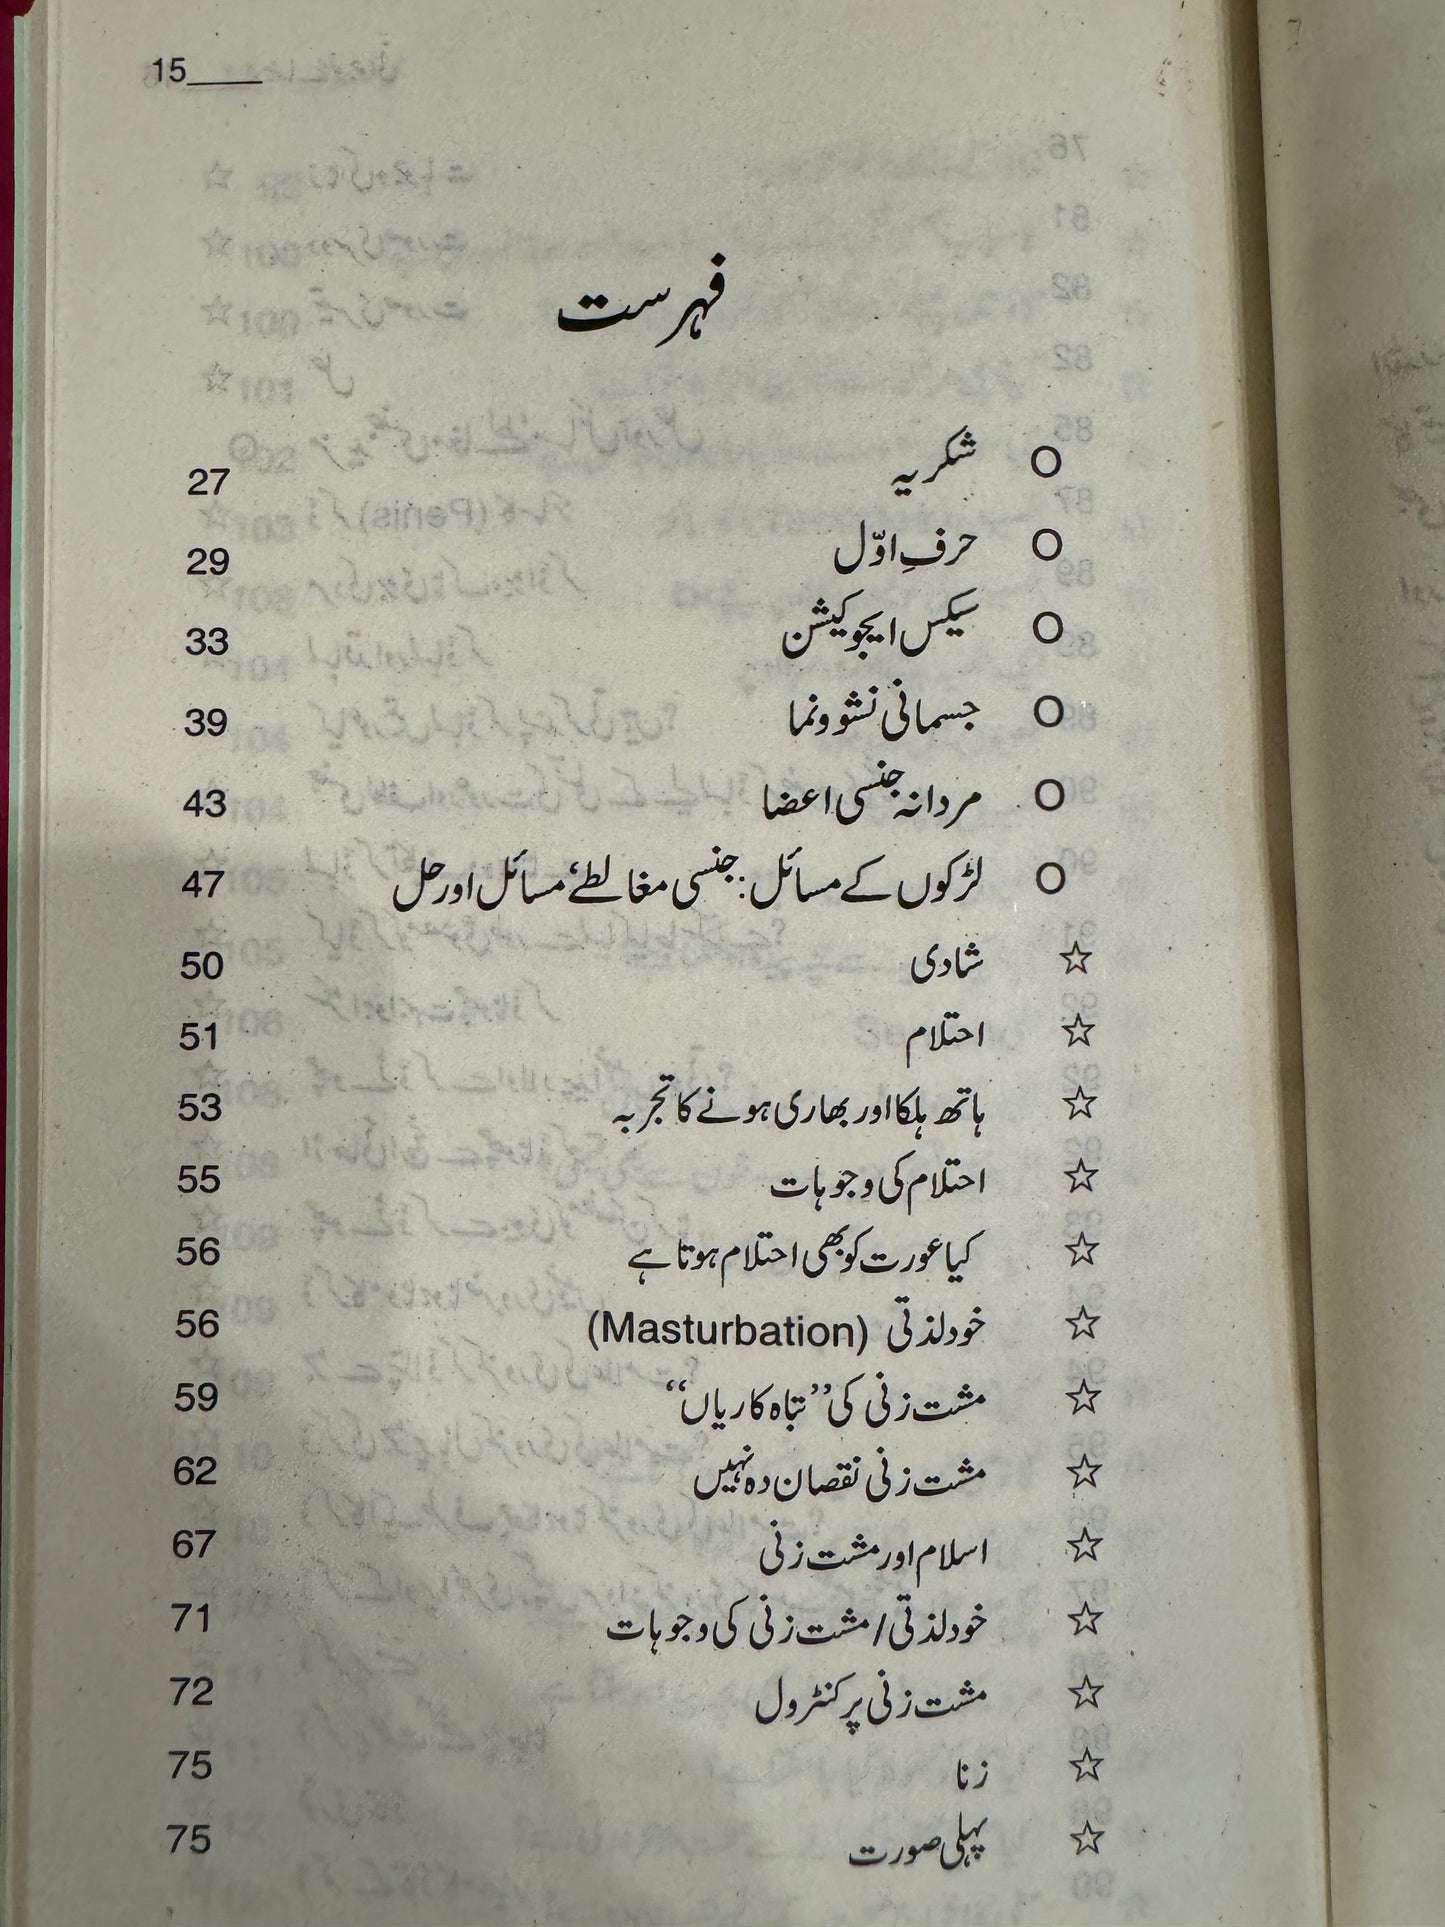 15____
فہرست
○ شکریہ 27
○ حرفِ اوّل 29
○ سیکس ایجوکیشن 33
○ جسمانی نشوونما 39
○ مردانہ جنسی اعضا 43
○ لڑکوں کے مسائل: جنسی مغالطے‘ مسائل اور حل 47
☆ شادی 50
☆ احتلام 51
☆ ہاتھ ہلکا اور بھاری ہونے کا تجربہ 53
☆ احتلام کی وجوہات 55
☆ کیا عورت کو بھی احتلام ہوتا ہے 56
☆ خودلذتی (Masturbation) 56
☆ مشت زنی کی ’’تباہ کاریاں‘‘ 59
☆ مشت زنی نقصان دہ نہیں 62
☆ اسلام اور مشت زنی 67
☆ خودلذتی/مشت زنی کی وجوہات 71
☆ مشت زنی پر کنٹرول 72
☆ زنا 75
☆ پہلی صورت 75